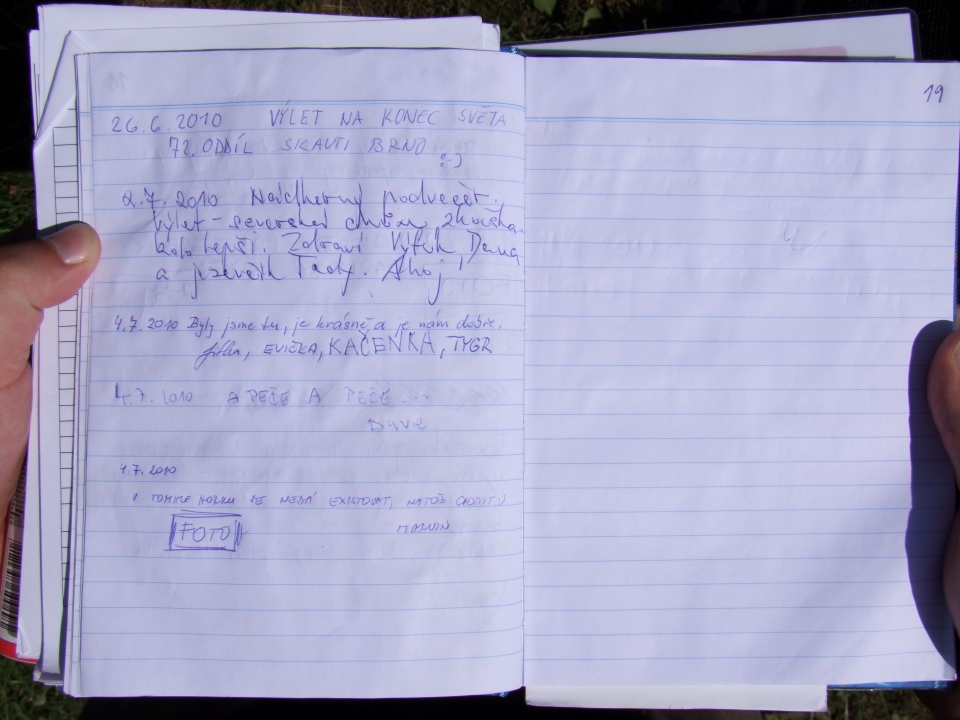 19
26.6.2010 VÝLET NA KONEC SVĚTA
72. ODDÍL SKAUTI BRNO
:-)
2.7.2010 Nádherný podvečer.
Výlet - severská chůze,
kolo lepší. Zdraví Dana
a Ahoj
4.7.2010 Byly jsme tu, je krásně a je nám dobře.
Jitka, EVIČKA, KAČENKA, TYGR
4.7.2010 A PEČE A PEČE...
Dave
4.7.2010
V TOMHLE HORKU SE NEDÁ EXISTOVAT, NATOŽ CHODIT :)
FOTO MARVIN